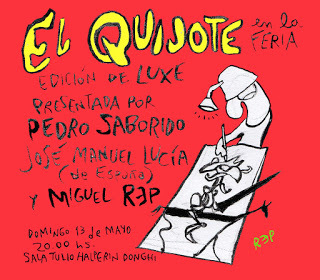 EL QUIJOTE en la
FERIA
EDICIÓN DE LUXE
PRESENTADA POR
PEDRO SABORIDO
JOSÉ MANUEL LUCÍA
(de España)
y MIGUEL REP
DOMINGO 13 de MAYO
20.00 hs.
SALA TULIO HALPERIN DONGHI
REP